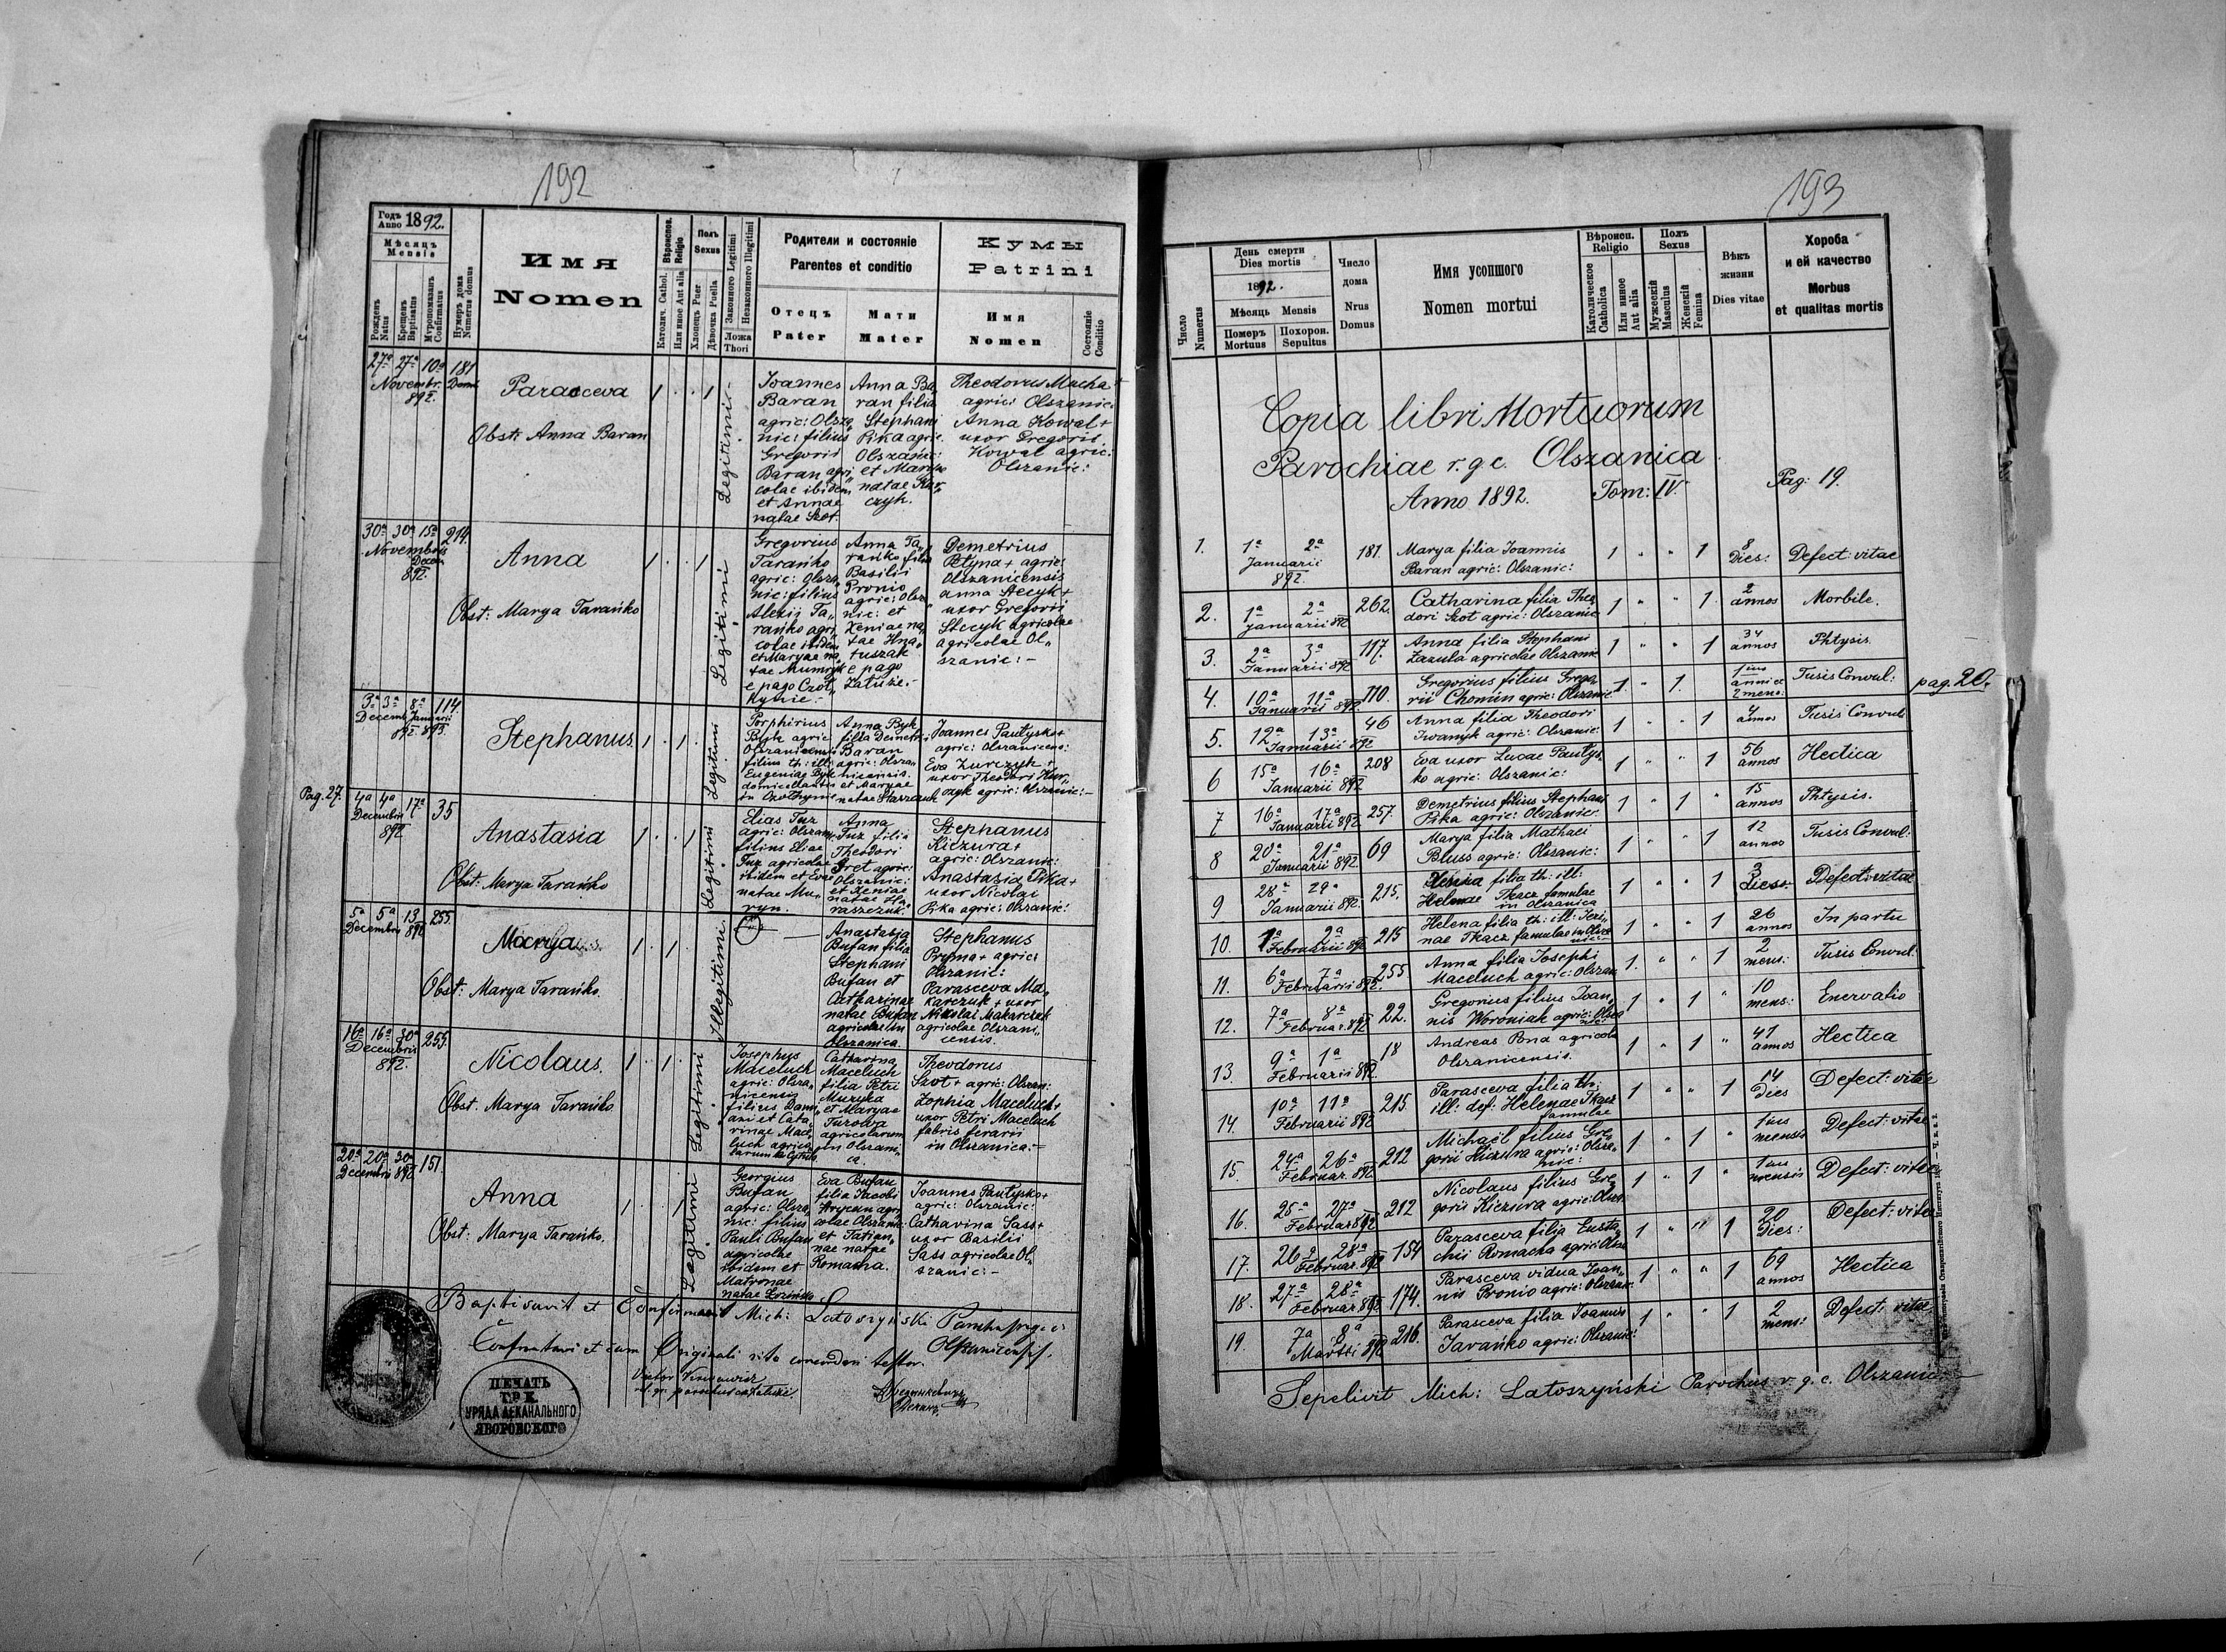 192
Годъ Anno 1892.
Мѣсяцъ
Mensis
Рожденъ Natus
Крещенъ Baptisatus
Мѵропомазанъ Confirmatus
Нумеръ дома Numerus domus
Имя
Nomen
Вѣроиспов. Religio
Католич. Cathol.
Или иное Aut alia
Полъ Sexus
Хлопецъ Puer
Дѣвочка Puella
Законного Legitimi
Незаконного Illegitimi
Ложа Thori
Родители и состоянiе
Parentes et conditio
Отецъ
Pater
Мати
Mater
Кумы
Patrini
Имя
Nomen
Состоянiе Conditio
27ª 27ª 10ª 181
Novembr. 892.
Parasceva
Obst: Anna Baran
1 . . 1
Legitimi
Joannes
Baran
agric: Olsza„
nic: filius
Gregorii
Baran agri„
colae ibidem
et Annae
natae Szot.
Anna Ba„
ran filia
Stephani
Pika agric.
Olszanic:
et Maryae
natae Kar„
czyk.
Theodorus Mucha +
agric: Olszanic:
Anna Kowal +
uxor Gregorii
Kowal agric:
Olszanic:
30ª 30ª 15ª 214.
Novembris
Decem.
892.
Anna
Obst: Marya Tarańko
1 . . 1
Legitimi
Gregorius
Tarańko
agric: Olsza„
nic: filius
Alexii Ta„
rańko agri„
colae ibidem
et Maryae na„
tae Mumryk
e pago Czoł„
hynie.
Anna Ta„
rańko filia
Basilii
Pronio
agric: Olsza„
nic: et
Xeniae na„
tae Hna„
tuszak
e pago
Załuże.
Demetrius
Petyna + agric:
Olszanicensis
Anna Stecyk +
uxor Gregorii
Stecyk agricolae
agricolae Ol„
szanic: –
3ª 3ª 8ª 114.
Decemb. Januarii
892. 893.
Stephanus
1 . 1 .
Legitimi
Porphirius
Byk agric:
Olszanicensis
filius th: ill:
Eugeniae Byk
domicellantis
in Czołhynie
Anna Byk
filia Demetrii
Baran
agric: Olsza„
nicensis.
et Maryae
natae Starzauk
Joannes Pautysko +
agric: Olszanicens:
Eva Kurczyk +
uxor Theodori Kur„
czyk agric: Olszanic: –
Pag. 27.
4ª 4ª 17ª 35
Decembris
892.
Anastasia
Obst: Marya Tarańko
1 . . 1
Legitimi
Elias Tuz
agric: Olszan:
filius Eliae
Tuz agricolae
ibidem et Evae
natae Mu„
ryn.
Anna
Tuz filia
Theodori
Gret agric:
Olszanic:
et Xeniae
natae Ha„
raszczuk.
Stephanus
Kiczura +
agric: Olszanic:
Anastasia Pika +
uxor Nicolai
Pika agric: Olszanic:
5ª 5ª 13 255.
Decembris 892
Marya
Obst: Marya Tarańko.
1 . 1
Illegitimi.
Anastasia
Bufan filia
Stephani
Bufan et
Catharinae
natae Bufan
agricolae in
Olszanica.
Stephanus
Pryma + agric:
Olszanic:
Parasceva Ma„
karczuk + uxor
Nikolai Makarczuk
agricolae Olszani„
censis.
16ª 16ª 30ª 255.
Decembris
892.
Nicolaus.
Obst. Marya Tarańko
1 . 1 .
Legitimi
Josephus
Maceluch
agric: Olsza„
nicensis
filius Dami„
ani et Cata„
rinae Mace„
luch agrico„
larum
Catharina
Maceluch
filia Petri
Muzyka
et Maryae
Turowa
agricolarum
in Olszani„
ca.
Theodorus
Szot + agric: Olszan:
Zophia Maceluch +
uxor Petri Maceluch
fabris ferarii
in Olszanica. –
20ª 20ª 30ª 151.
Decembris 892.
Anna
Obst: Marya Tarańko.
1 . . 1
Legitimi
Georgius
Bufan
agric: Olsza„
nic: filius
Pauli Bufan
agricolae
ibidem et
Matronae
natae Łozińska
Eva Bufan
filia Jacobi
Hrycan agri„
colae Olszanic:
et Tatian„
nae natae
Romacha.
Joannes Pautysko +
agric: Olszanic:
Catharina Sass +
uxor Basilii
Sass agricolae Ol„
szanic: –
Baptisavit et Confirmavit Mich: Latoszyński Parochus r. g. c.
Olszanicensis.
Confrontavi et cum Originali rite concordari testor.
ПЕЧАТЬ
ГР. К.
УРЯДА ДЕКАНАЛЬНОГО
ЯВОРОВСКОГО
193
Число Numerus
День смерти
Dies mortis
1892.
Мѣсяць Mensis
Померъ Mortuus
Похорон. Sepultus
Число
дома
Nrus
Domus
Имя усопшого
Nomen mortui
Вѣроисп.
Religio
Католическое Catholica
Или иное Aut alia
Полъ
Sexus
Мужескій Masculus
Женскій Femina
Вѣкъ
жизни
Dies vitae
Хороба
и ей качество
Morbus
et qualitas mortis
Copia libri Mortuorum
Parochiae r. g. c. Olszanica.
Anno 1892. Tom: IV.
Pag: 19.
1. 1ª 2ª Januarii 892. 181. Marya filia Joannis Baran agric: Olszanic: 1 " " 1 8 Dies: Defect: vitae
2. 1ª 2ª Januarii 892 262. Catharina filia Theo„ dori Szot agric: Olszanic 1 " " 1 2 annos Morbile.
3. 2ª 3ª Januarii 892 117. Anna filia Stephani Zazula agricolae Olszanic 1 " " 1 34 annos Phtysis.
4. 10ª 11ª Januarii 892. 110. Gregorius filius Grego„ rii Chomin agric: Olszanic: 1. " 1. 1ius anni et 2 mens: Tusis Convul:
pag. 20.
5. 12ª 13ª Januarii 892 46 Anna filia Theodori Iwanyk agric: Olszanic: 1 " " 1 4 annos Tusis Convul:
6 15ª 16ª Januarii 892 208 Eva uxor Lucae Pautys„ ko agric: Olszanic: 1 " " 1 56 annos Hectica
7 16ª 17ª Januarii 892 257. Demetrius filius Stephani Pika agric: Olszanic: 1 " 1 " 15 annos Phtysis.
8 20ª 21ª Januarii 892. 69 Marya filia Mathaei Bluss agric: Olszanic: 1 " " 1 12 annos Tusis Convul:
9 28ª 29ª Januarii 892. 215. filia th: ill: Helenae Tkacz famulae in Olszanica 1 " " 1 3 Dies: Defect: vitae
10. 1ª 2ª Februarii 892 215 Helena filia th: ill: Xeni„ nae Tkacz famulae in Olsza nic: 1 " " 1 26 annos In partu
11. 6ª 7ª Februarii 892. 255 Anna filia Josephi Maceluch agric: Olszan 1. " " 1 2 mens: Tusis Convul:
12. 7ª 8ª Februar. 892 22. Gregorius filius Joan„ nis Woroniak agric: Olsza nic: 1 " 1 " 10 mens: Enervatio
13. 9ª 1ª Februarii 892. 18 Andreas Pona agricola Olszanicensis. 1 " 1 " 41 annos Hectica
14. 10ª 11ª Februarii 892 215 Parasceva filia th: ill: def: Helenae Tkacz famulae 1 " " 1 14 Dies Defect: vitae
15. 24ª 26ª Februar. 892 212 Michaël filius Gre„ gorii Kiczura agric: Olsza„ nic: 1 " 1 " 1ius mensis Defect: vitae
16. 25ª 27ª Februar 892 212 Nicolaus filius Gre„ gorii Kiczura agric: Olsza 1 " 1 " 1ius mensis Defect: vitae
17. 26ª 28ª Februar. 892 154 Parasceva filia Eusta„ chii Romacha agric: Olsza 1 " " 1 20 Dies: Defect: vitae
18. 27ª 28ª Februar 892 174. Parasceva vidua Joan„ nis Pronio agric: Olszan: 1 " " 1 69 annos Hectica
19. 7ª 8ª Martii 892 216. Parasceva filia Joannis Tarańko agric: Olszanic: 1 " " 1 2 mens: Defect: vitae
Sepelivit Mich: Latoszyński Parochus r. g. c. Olszanic: